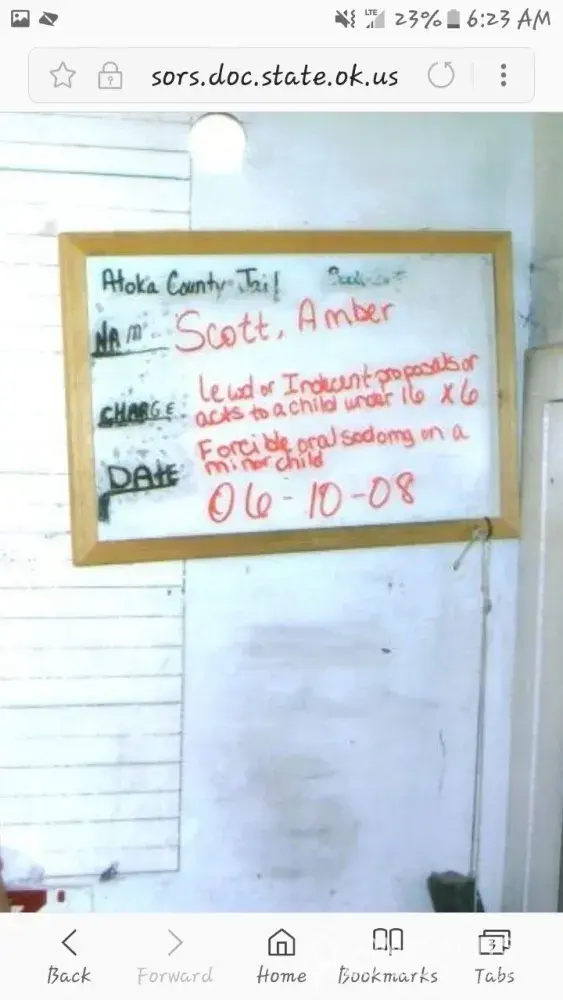 LTE 23% 6:23 AM
sors.doc.state.ok.us
Atoka County Jail
NAM Scott, Amber
CHARGE: lewd or Indecent proposals or
acts to a child under 16 x6
Forcible oral sodomy on a
minor child
DATE
06-10-08
Back Forward Home Bookmarks Tabs
3